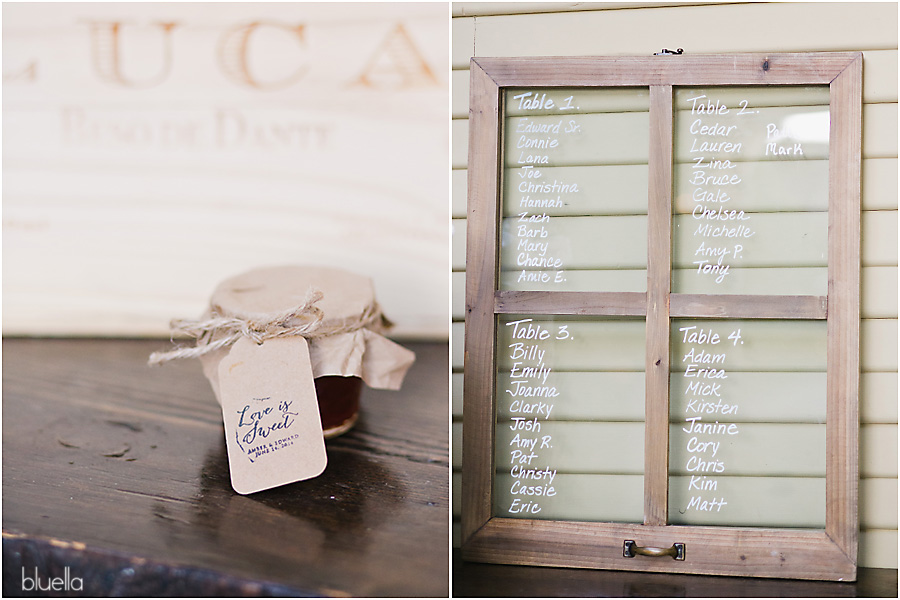 LUCA
PESO DE DANTE
Love is
Sweet
AMBER & EDWARD
JUNE 14, 2014
bluella
Table 1.
Edward Sr.
Connie
Lana
Joe
Christina
Hannah
Zach
Barb
Mary
Chance
Amie E.
Table 2.
Cedar
Lauren
Zina
Bruce
Gale
Chelsea
Michelle
Amy P.
Tony
Mark
Table 3.
Billy
Emily
Joanna
Clarky
Josh
Amy R.
Pat
Christy
Cassie
Eric
Table 4.
Adam
Erica
Mick
Kirsten
Janine
Cory
Chris
Kim
Matt